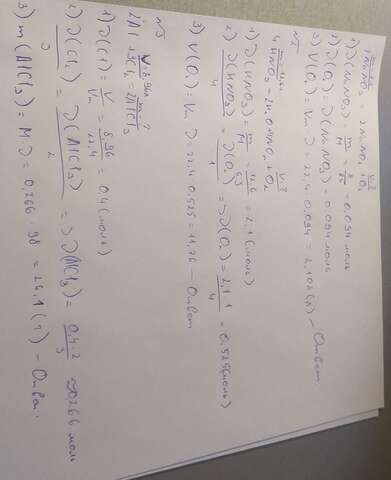 1) ν(NaNO₃) = m/M = 8/85 = 0,094 моль
2) ν(O₂) = ν(NaNO₃) = 0,094 моль
3) V(O₂) = Vm ν = 22,4 · 0,094 = 2,102 (л) – Ответ
4HNO₃ = 2H₂O + 4NO₂ + O₂
1) ν(HNO₃) = m/M = = 2,1 (моль)
2) ν(HNO₃)/4 = ν(O₂)/1 => ν(O₂) = 2,1·1/4 = 0,525 (моль)
3) V(O₂) = Vm ν = 22,4 · 0,525 = 11,76 – Ответ
№3
V=8,96л m-?
2Al + 3Cl₂ = 2AlCl₃
1) ν(Cl) = V/Vm = 8,96/22,4 = 0,4 (моль)
2) ν(Cl₂)/3 = ν(AlCl₃)/2 => ν(AlCl₃) = 0,4·2/3 = 0,266 моль
3) m(AlCl₃) = M ν = 0,266 · 98 = 26,1 (г) – Ответ.